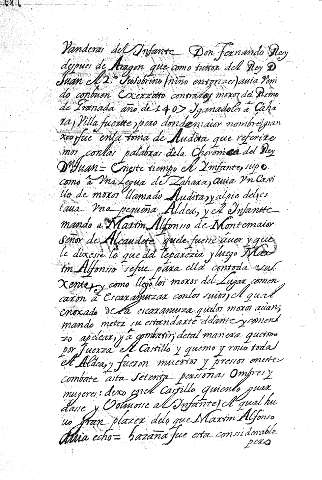 Vanderas del Infante Don Fernando Rey
despues de Aragon que como tutor del Rey D
Juan el 2º su sobrino (niño entonces) avia Veni
do con buen exercito contra los moros del Reino
de Granada año de 1407 i ganadoles a Caha
ra, Villa fuerte, pero donde maior nombre gran
xeo fue en la toma de Audita que referire
mos con las palabras de la Choronica del Rey
Dn Juan = en este tiempo el Infante supo
como a Una legua de Zahara, avia Un Casti
llo de moros llamado Audita, y al pie del es
tava Una pequeña Aldea, y el Infante
mando a Martin Alfonso de Montemaior
señor de Alcaudete que la fuese a ver y que
le dixese lo que della parezia y luego Mar
tin Alfonso se fue para ella con toda su
xente, y como llego los moros del Lugar comen
zaron a escaramuzar con los suios, y el qual
enoxado de la escaramuza que los moros avian,
mando meter su estandarte delante y comen
zo apelear, y a combatir de tal manera que tomo
por fuerza el Castillo y quemo y robo toda
el Aldea, y fueron muertos y presos en este
combate asta setenta personas ombres y
mugeres: dexo en el Castillo quien lo guar
dase y Volviose al Infante, el qual hu
vo gran plazer de lo que Martin Alfonso
avia echo = hazaña fue esta considerable
pero